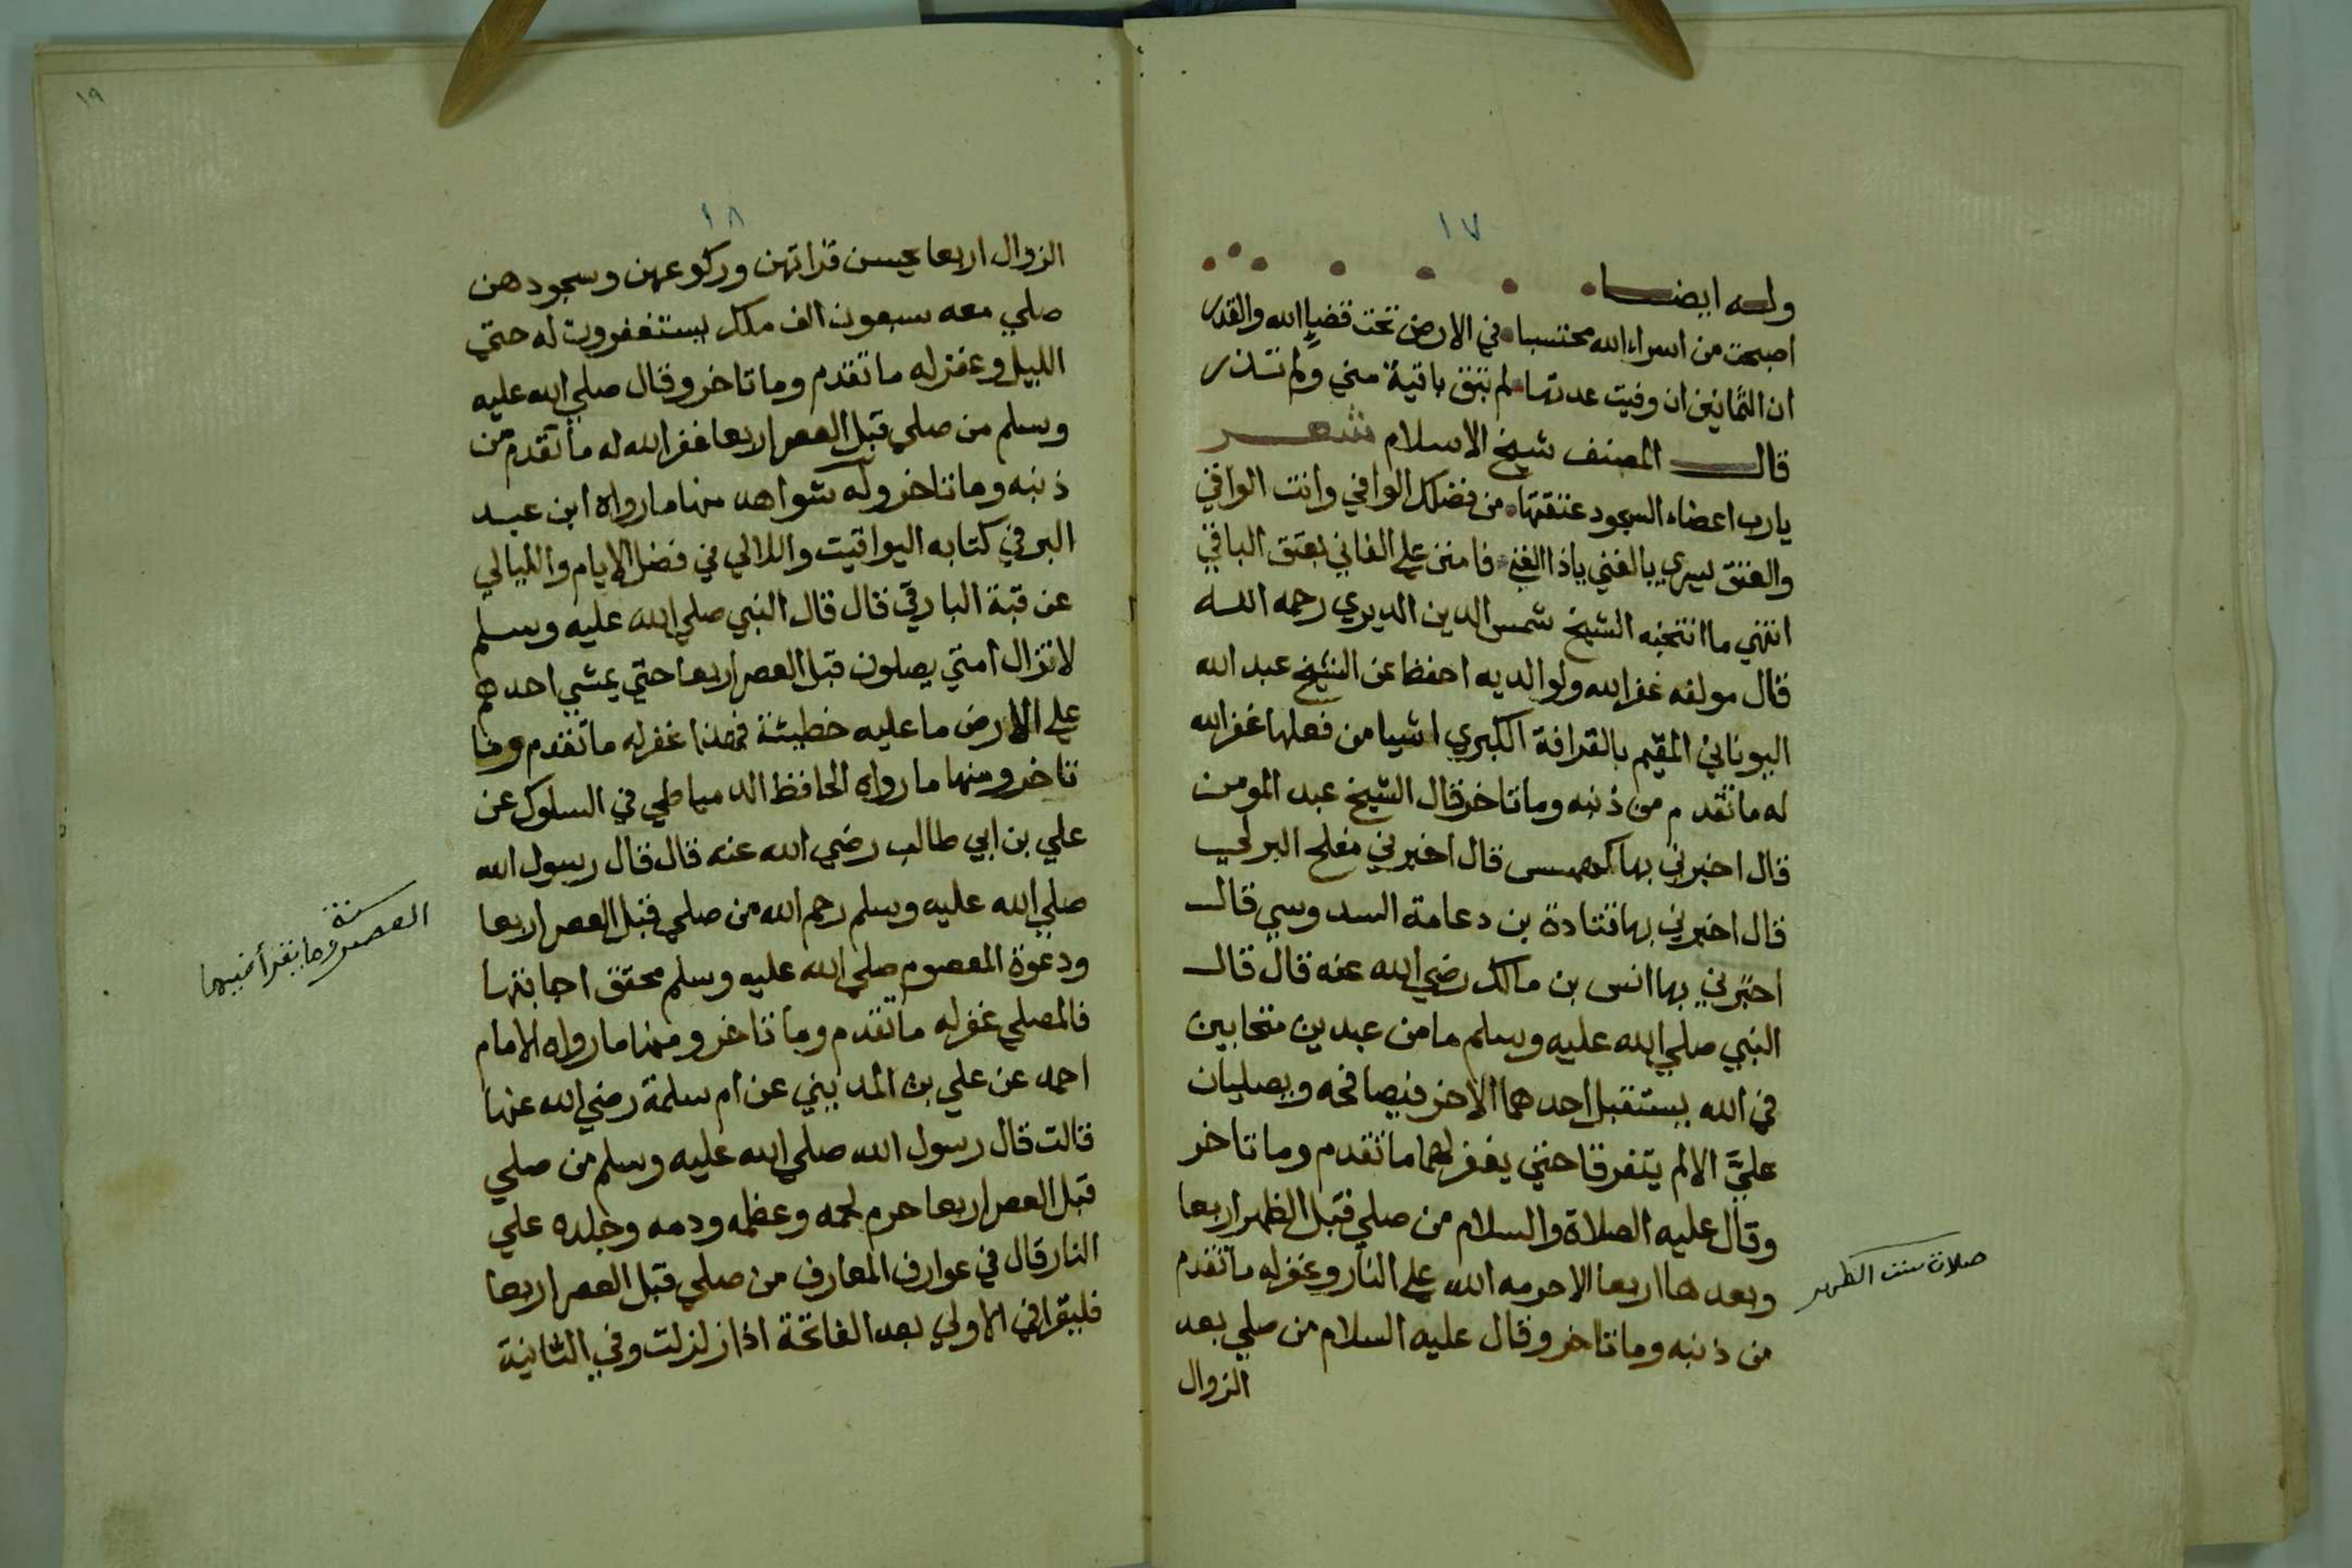 ١٧
وله ايضا
اصبحت من اسراء الله محتسبا في الارض تحت قضاء الله والقدر
ان الثمانين ان وفيت عدتها لم تبق باقية مني ولم تذر
قال المصنف شيخ الاسلام شعر
يارب اعضاء السجود عتقتها من فضلك الوافي وانت الواقي
والعتق يسري بالغني ياذا الغني فامنن علي الفاني بعتق الباقي
انتهي ما انتخبه الشيخ شمس الدين الديري رحمه الله
قال مولفه غفر الله ولوالديه احفظ عن الشيخ عبد الله
اليوناني المقيم بالقرافة الكبري اشيا من فعلها غفر الله
له ما تقدم من ذنبه وما تاخر قال الشيخ عبد المومن
قال اخبرني بها كهمس قال اخبرني مفلح البرلحي
قال اخبرني بها قتادة بن دعامة السدوسي قال
اخبرني بها انس بن مالك رضي الله عنه قال قال
النبي صلي الله عليه وسلم ما من عبدين متحابين
في الله يستقبل احدهما الاخر فيصافحه ويصليان
عليَّ الا لم يتفرقا حتي يغفر لهما ما تقدم وما تاخر
وقال عليه الصلاة والسلام من صلي قبل الظهر اربعا
وبعدها اربعا الا حرمه الله علي النار وغفر له ما تقدم
من ذنبه وما تاخر وقال عليه السلام من صلي بعد
الزوال
صلاة سنت الظهر
١٩
١٨
الزوال اربعا يحسن قراتهن وركوعهن وسجودهن
صلي معه سبعون الف ملك يستغفرون له حتي
الليل وغفر له ما تقدم وما تاخر وقال صلي الله عليه
وسلم من صلي قبل العصر اربعا غفر الله له ما تقدم من
ذنبه وما تاخر وله شواهد منها ما رواه ابن عبد
البر في كتابه اليواقيت واللالي في فضل الايام والليالي
عن قبة البارقي قال قال النبي صلي الله عليه وسلم
لا تزال امتي يصلون قبل العصر اربعا حتي يمشي احدهم
علي الارض ما عليه خطيئة فهذا غفر له ما تقدم وما
تاخر ومنها ما رواه الحافظ الدمياطي في السلوك عن
علي بن ابي طالب رضي الله عنه قال قال رسول الله
صلي الله عليه وسلم رحم الله من صلي قبل العصر اربعا
ودعوة المعصوم صلي الله عليه وسلم محقق اجابتها
فالمصلي غفر له ما تقدم وما تاخر ومنها ما رواه الامام
احمد عن علي بن المديني عن ام سلمة رضي الله عنها
قالت قال رسول الله صلي الله عليه وسلم من صلي
قبل العصر اربعا حرم لحمه وعظمه ودمه وجلده علي
النار قال في عوارف المعارف من صلي قبل العصر اربعا
فليقرا في الاولي بعد الفاتحة اذا زلزلت وفي الثانية
سنة
العصر وما يقرأ فيها